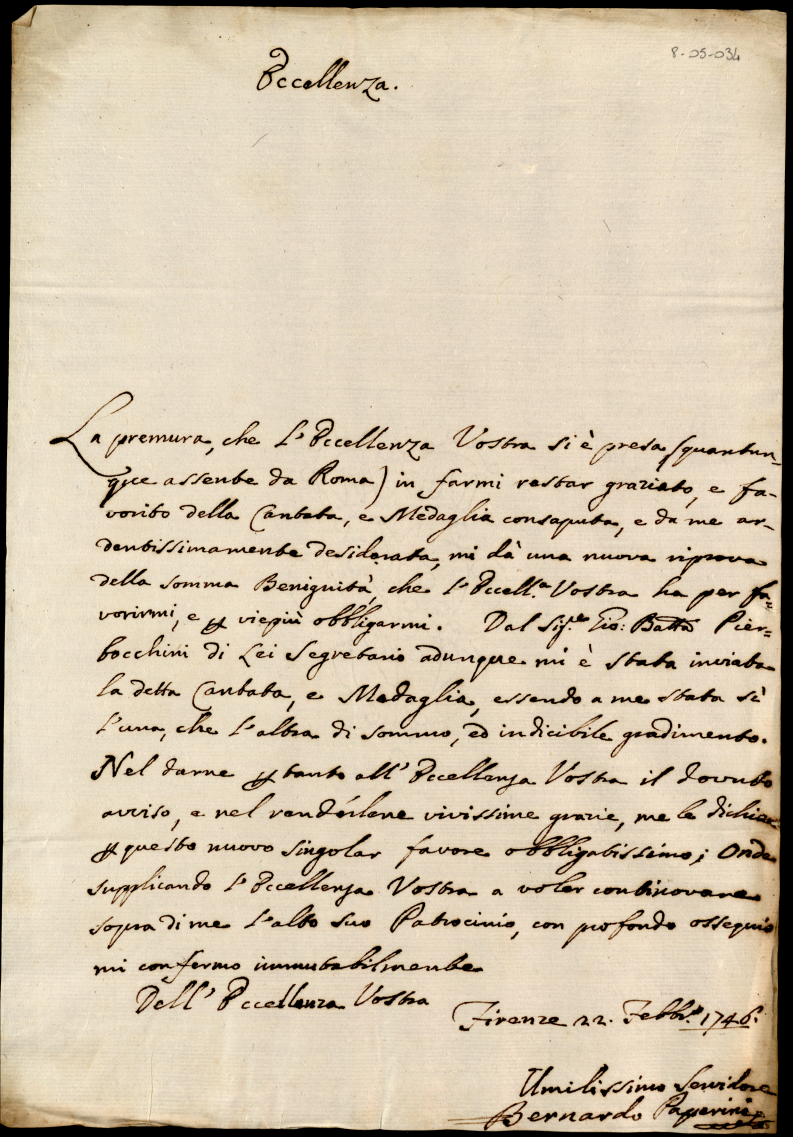 8-05-034
Eccellenza.
La premura, che l'Eccellenza Vostra si è presa (quantun-
que assente da Roma) in farmi restar graziato, e fa-
vorito della Cantata, e Medaglia consaputa, e da me ar-
dentissimamente desiderata, mi dà una nuova riprova
della somma Benignità, che l'Eccell.a Vostra ha per fa-
vorirmi, e p viepiù obbligarmi. Dal Sig.re Gio: Batta Pier=
bocchini di Lei Segretario adunque mi è stata inviata
la detta Cantata, e Medaglia, essendo a me stata sì
l'una, che l'altra di sommo, ed indicibile gradimento.
Nel darne p tanto all'Eccellenza Vostra il dovuto
avviso, e nel renderlene vivissime grazie, me le dichiaro
p questo nuovo singolar favore obbligatissimo; Onde
supplicando l'Eccellenza Vostra a voler continovare
sopra di me l'alto suo Patrocinio, con profondo ossequio
mi confermo immutabilmente
Dell'Eccellenza Vostra
Firenze 22. Febb.o 1746.
Umilissimo Servidore
Bernardo Paperini